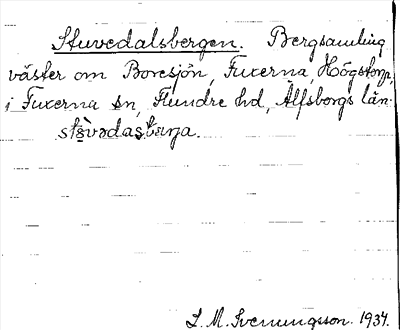 Stuvedalsbergen. Bergsamling
väster om Boresjön, Fuxerna Högstorp,
i Fuxerna sn, Flundre hd, Älfsborgs län.
S. M. Svenungsson. 1934.